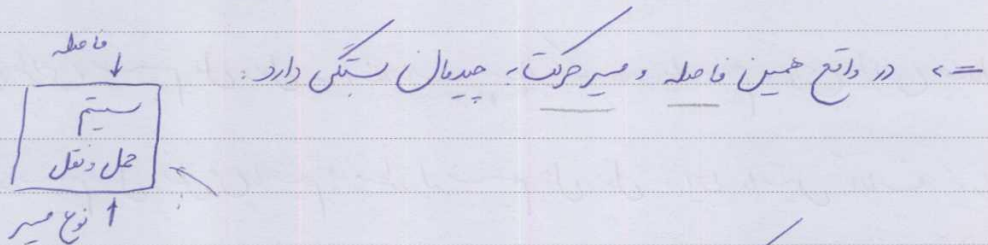 => در واقع همین فاصله و مسیر حرکت، به چیدمان بستگی دارد:
فاصله
سیستم
حمل و نقل
نوع مسیر